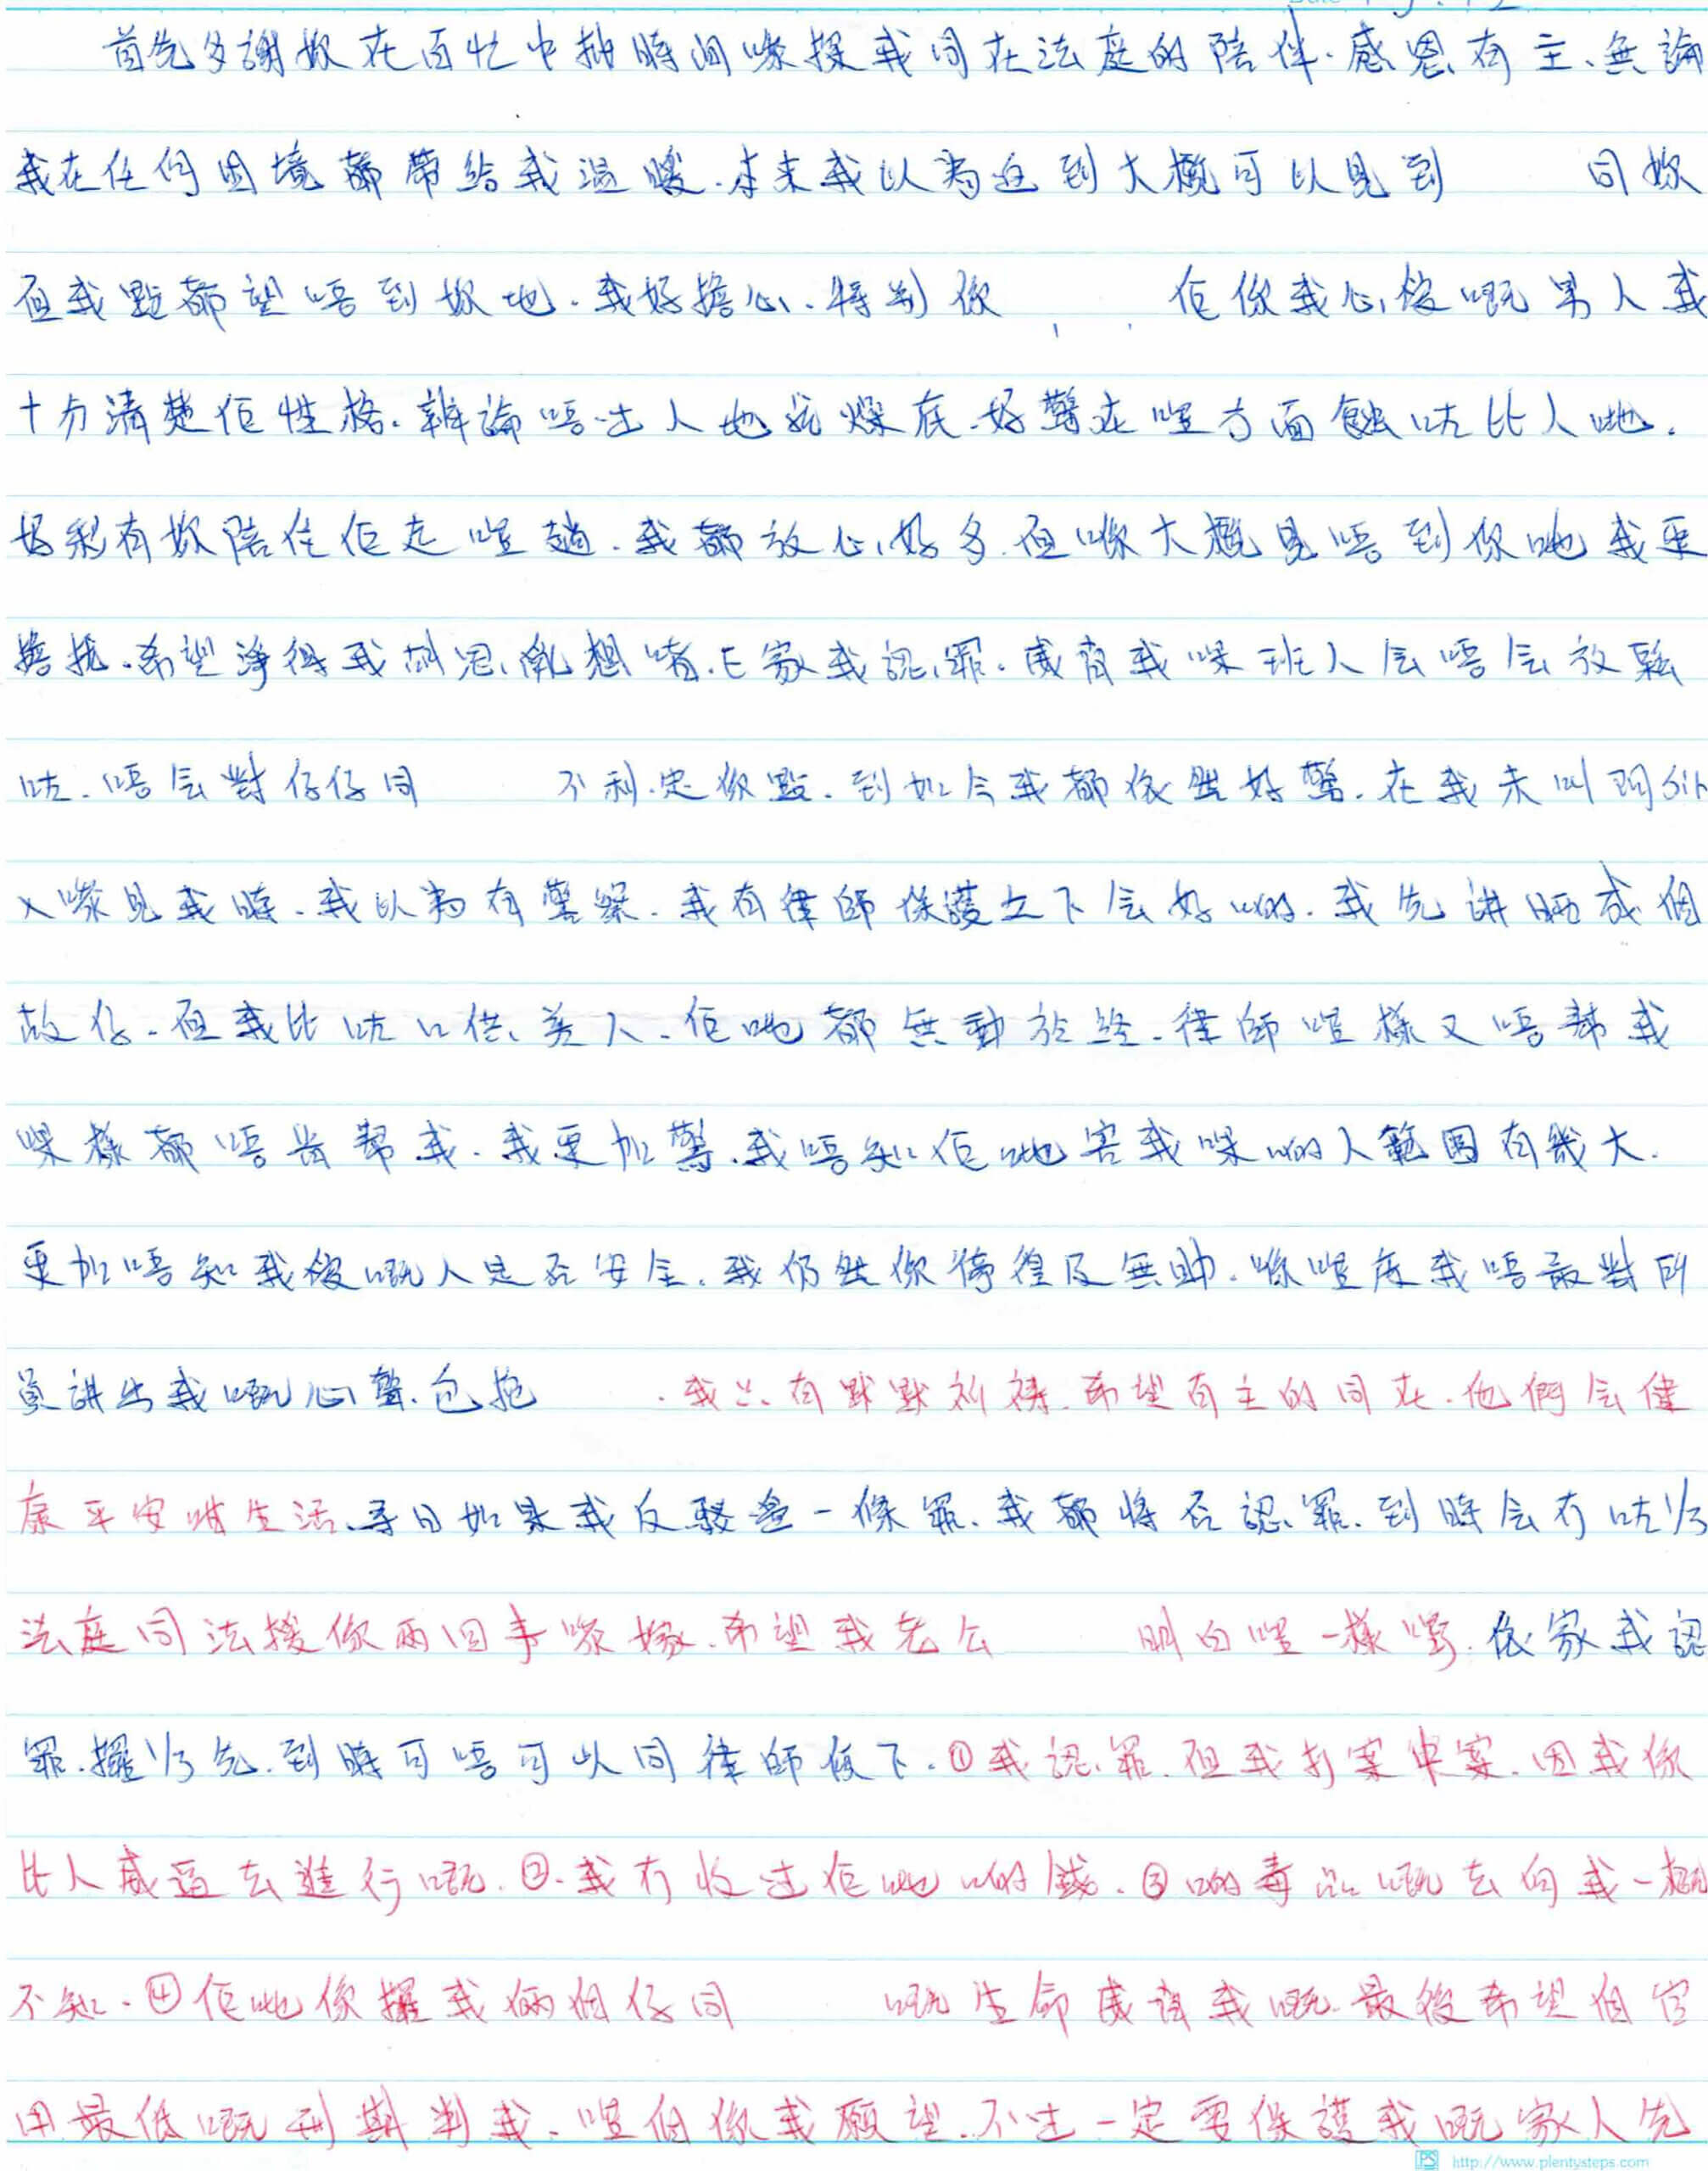 首先多謝妳在百忙中抽時间嚟探我同在法庭的陪伴.感恩有主、無論
我在任何困境都帶給我温暖.本來我以為返到大概可以見到 同妳
但我點都望唔到妳地.我好擔心.特別係 佢係我心愛嘅男人我
十分清楚佢性格.辩論唔出人地就燥底.好驚在呢方面蝕咗比人哋.
好彩有妳陪住佢走呢趟.我都放心好多.但喺大概見唔到你哋我更
擔擾.希望淨得我胡思亂想啫.E家我認罪.威脅我嗰班人会唔会放鬆
咗.唔会對仔仔同 不利.定係點.到如今我都依然好驚.在我未叫阿Sir
入嚟見我時.我以為有警察.我有律師保護之下会好啲.我先讲晒成個
故仔.但我比咗口供、差人.佢哋都無動於終.律師呢樣又唔幫我
嗰樣都唔肯幫我.我更加驚.我唔知佢哋害我嗰啲人範围有幾大.
更加唔知我愛嘅人是否安全.我仍然係徬徨及無助.喺呢度我唔敢對所
員讲出我嘅心聲.包括 .我只有默默祈禱.希望有主的同在.他們会健
康平安咁生活.尋日如果我反駁邊一條罪.我都将否認罪.到時会冇咗1/3
法庭同法援係兩回事嚟嫁.希望我老公 明白呢一樣嘢.依家我認
罪.攞1/3先.到時可唔可以同律師傾下.①我認罪.但我打案中案.因我係
比人威逼去進行嘅.②.我冇收过佢哋啲錢.③啲毒品嘅去向我一概
不知.④佢哋係攞我倆個仔同 嘅生命威脅我嘅.最後希望個官
用最低嘅刑期判我.呢個係我願望.不过一定要保護我嘅家人先
PS http://www.plentysteps.com